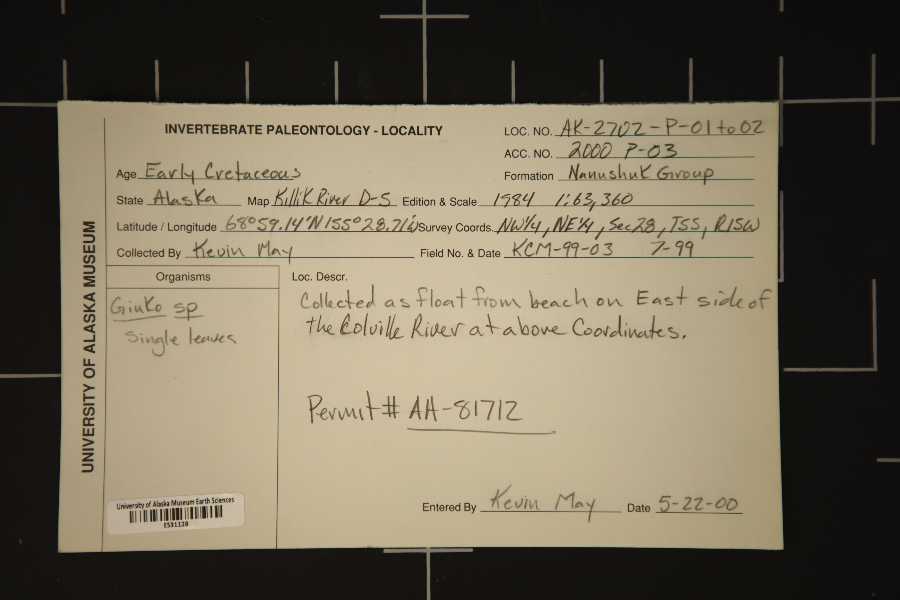 INVERTEBRATE PALEONTOLOGY - LOCALITY
LOC. NO. AK-2702-P-01 to 02
ACC. NO. 2000 P-03
Age Early Cretaceous
Formation Nanushuk Group
State Alaska Map Killik River D-5 Edition & Scale 1984 1:63,360
Latitude / Longitude 68°59.14'N 155°28.71'W Survey Coords. NW1/4, NE1/4, Sec28, T5S, R15W
Collected By Kevin May Field No. & Date KCM-99-03 7-99
UNIVERSITY OF ALASKA MUSEUM
Organisms
Ginko sp
Single leaves
Loc. Descr.
Collected as float from beach on East side of
the Colville River at above Coordinates.
Permit # AA-81712
University of Alaska Museum Earth Sciences
ES31128
Entered By Kevin May Date 5-22-00